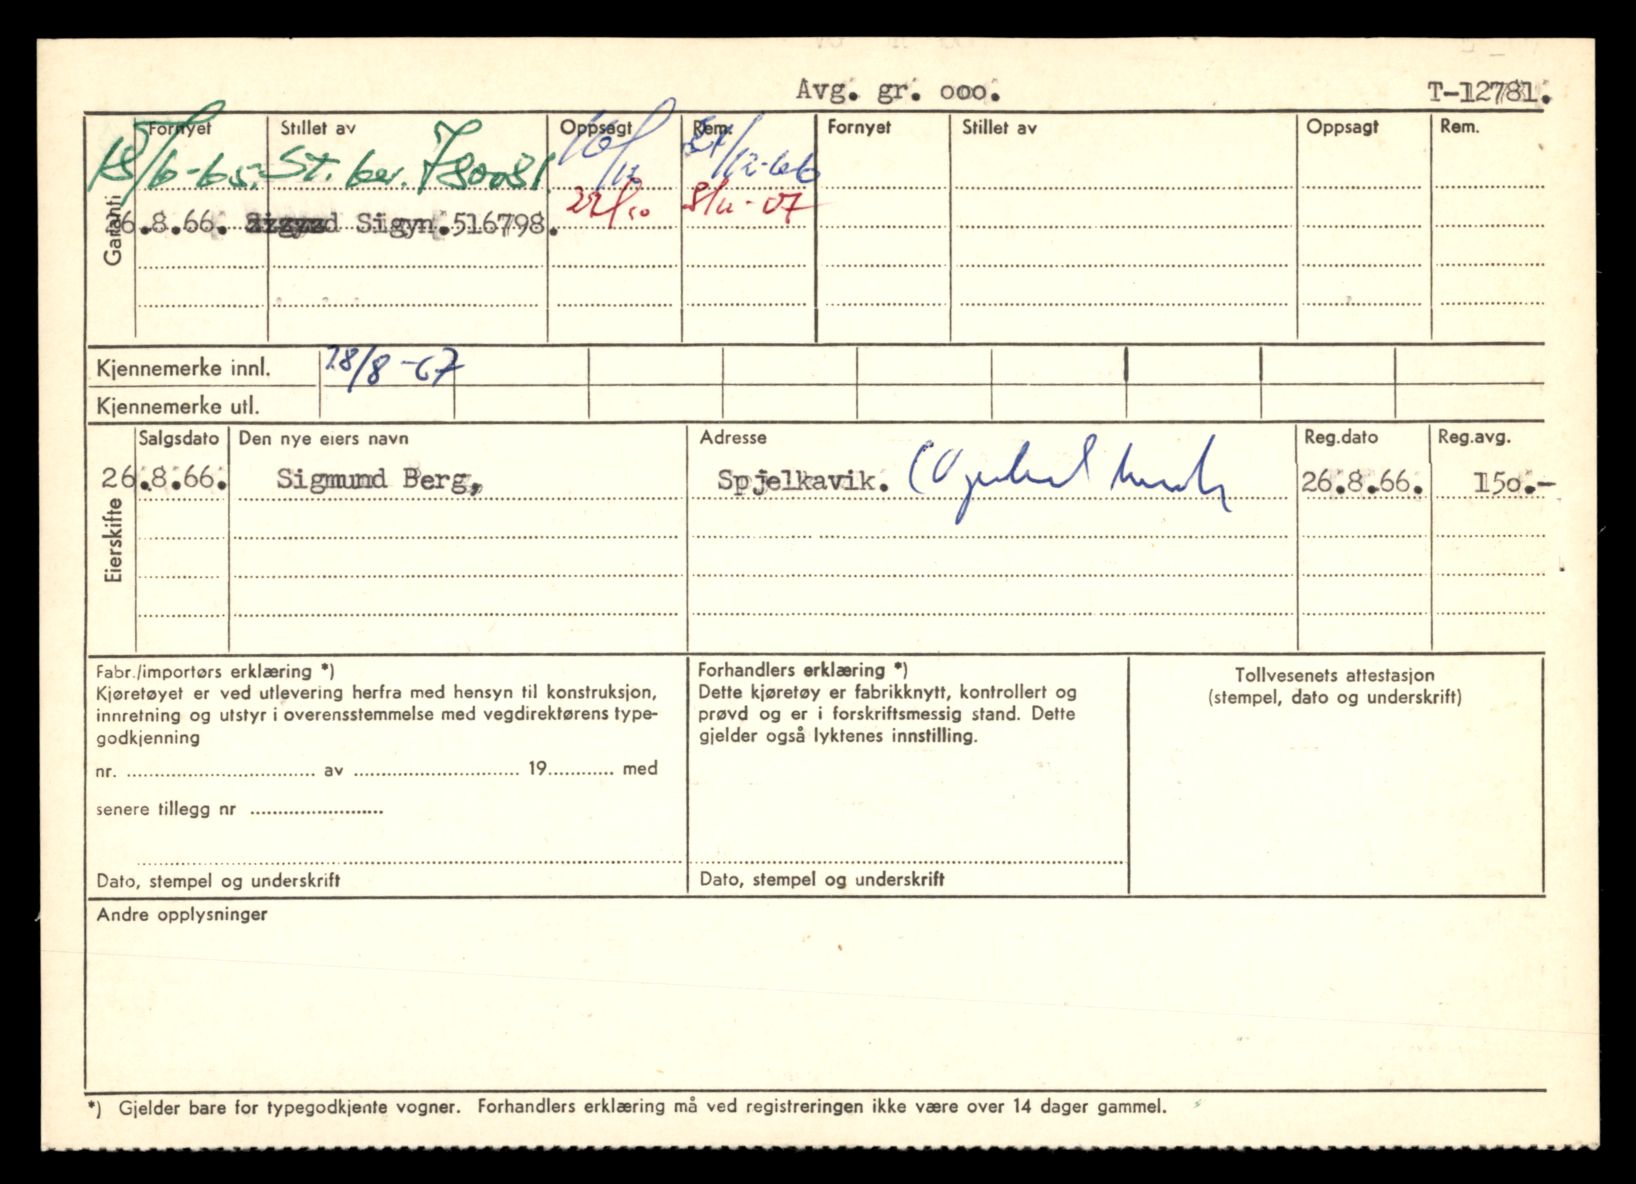 Avg. gr. ooo. T-12781.
Fornyet Stillet av Oppsagt Rem. Fornyet Stillet av Oppsagt Rem.
18/6-65. St. ber. 780081. 16/12 /12-66
Garanti
26.8.66. Sigyn.516798. 22/10 8/11-67
Kjennemerke innl. 28/8-67
Kjennemerke utl.
Eierskifte
Salgsdato Den nye eiers navn Adresse Reg.dato Reg.avg.
26.8.66. Sigmund Berg, Spjelkavik. 26.8.66. 150.-
Fabr./importørs erklæring *)
Kjøretøyet er ved utlevering herfra med hensyn til konstruksjon,
innretning og utstyr i overensstemmelse med vegdirektørens type-
godkjenning
nr. .......... av .......... 19.......... med
senere tillegg nr ..........
Dato, stempel og underskrift
Forhandlers erklæring *)
Dette kjøretøy er fabrikknytt, kontrollert og
prøvd og er i forskriftsmessig stand. Dette
gjelder også lyktenes innstilling.
Dato, stempel og underskrift
Tollvesenets attestasjon
(stempel, dato og underskrift)
Andre opplysninger
*) Gjelder bare for typegodkjente vogner. Forhandlers erklæring må ved registreringen ikke være over 14 dager gammel.